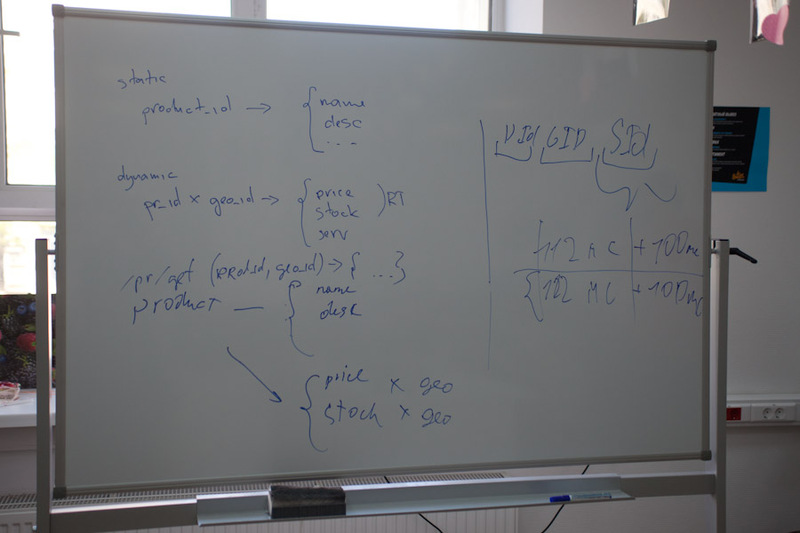 static
product_id → { name
desc
...
dynamic
pr_id × geo_id → { price ) RT
stock
serv
/pr/get (prod_id, geo_id) → { ... }
product — { name
desc
{ price × geo
stock × geo
GID SId
112 мс + 100мс
{ 122 мс + 100мс